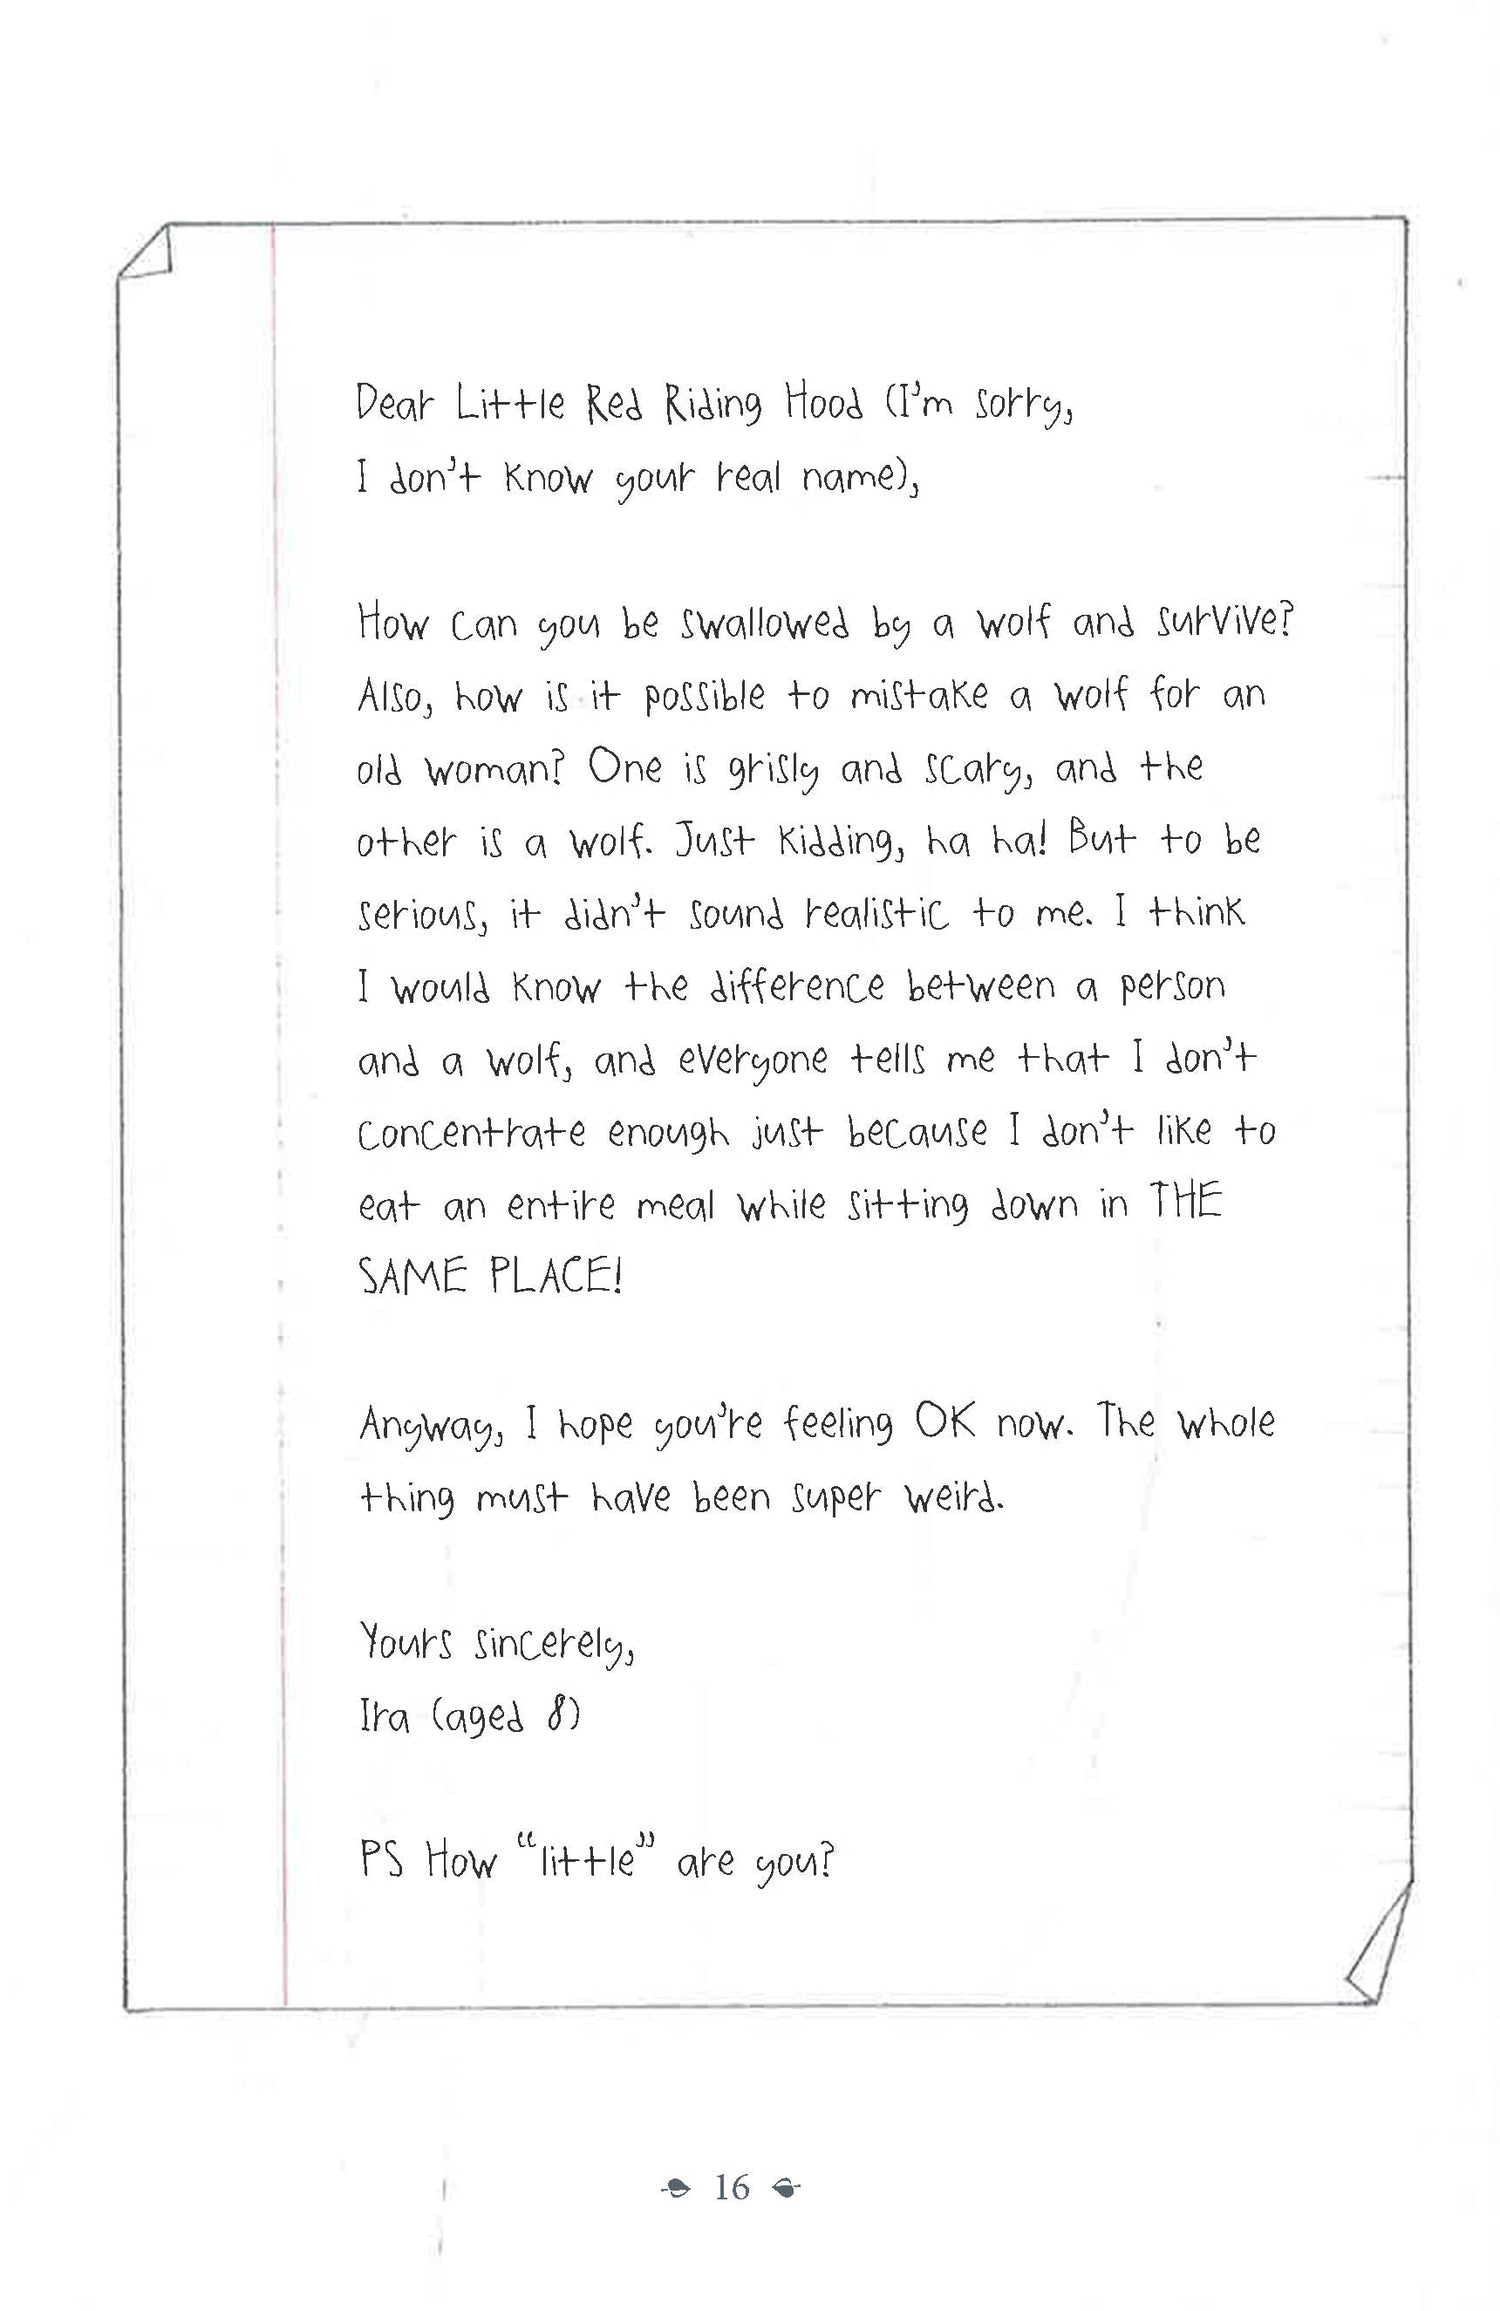 Dear Little Red Riding Hood (I'm sorry,
I don't know your real name),
How can you be swallowed by a wolf and survive?
Also, how is it possible to mistake a wolf for an
old woman? One is grisly and scary, and the
other is a wolf. Just kidding, ha ha! But to be
serious, it didn't sound realistic to me. I think
I would know the difference between a person
and a wolf, and everyone tells me that I don't
concentrate enough just because I don't like to
eat an entire meal while sitting down in THE
SAME PLACE!
Anyway, I hope you're feeling OK now. The whole
thing must have been super weird.
Yours sincerely,
Ira (aged 8)
PS How “little” are you?
16